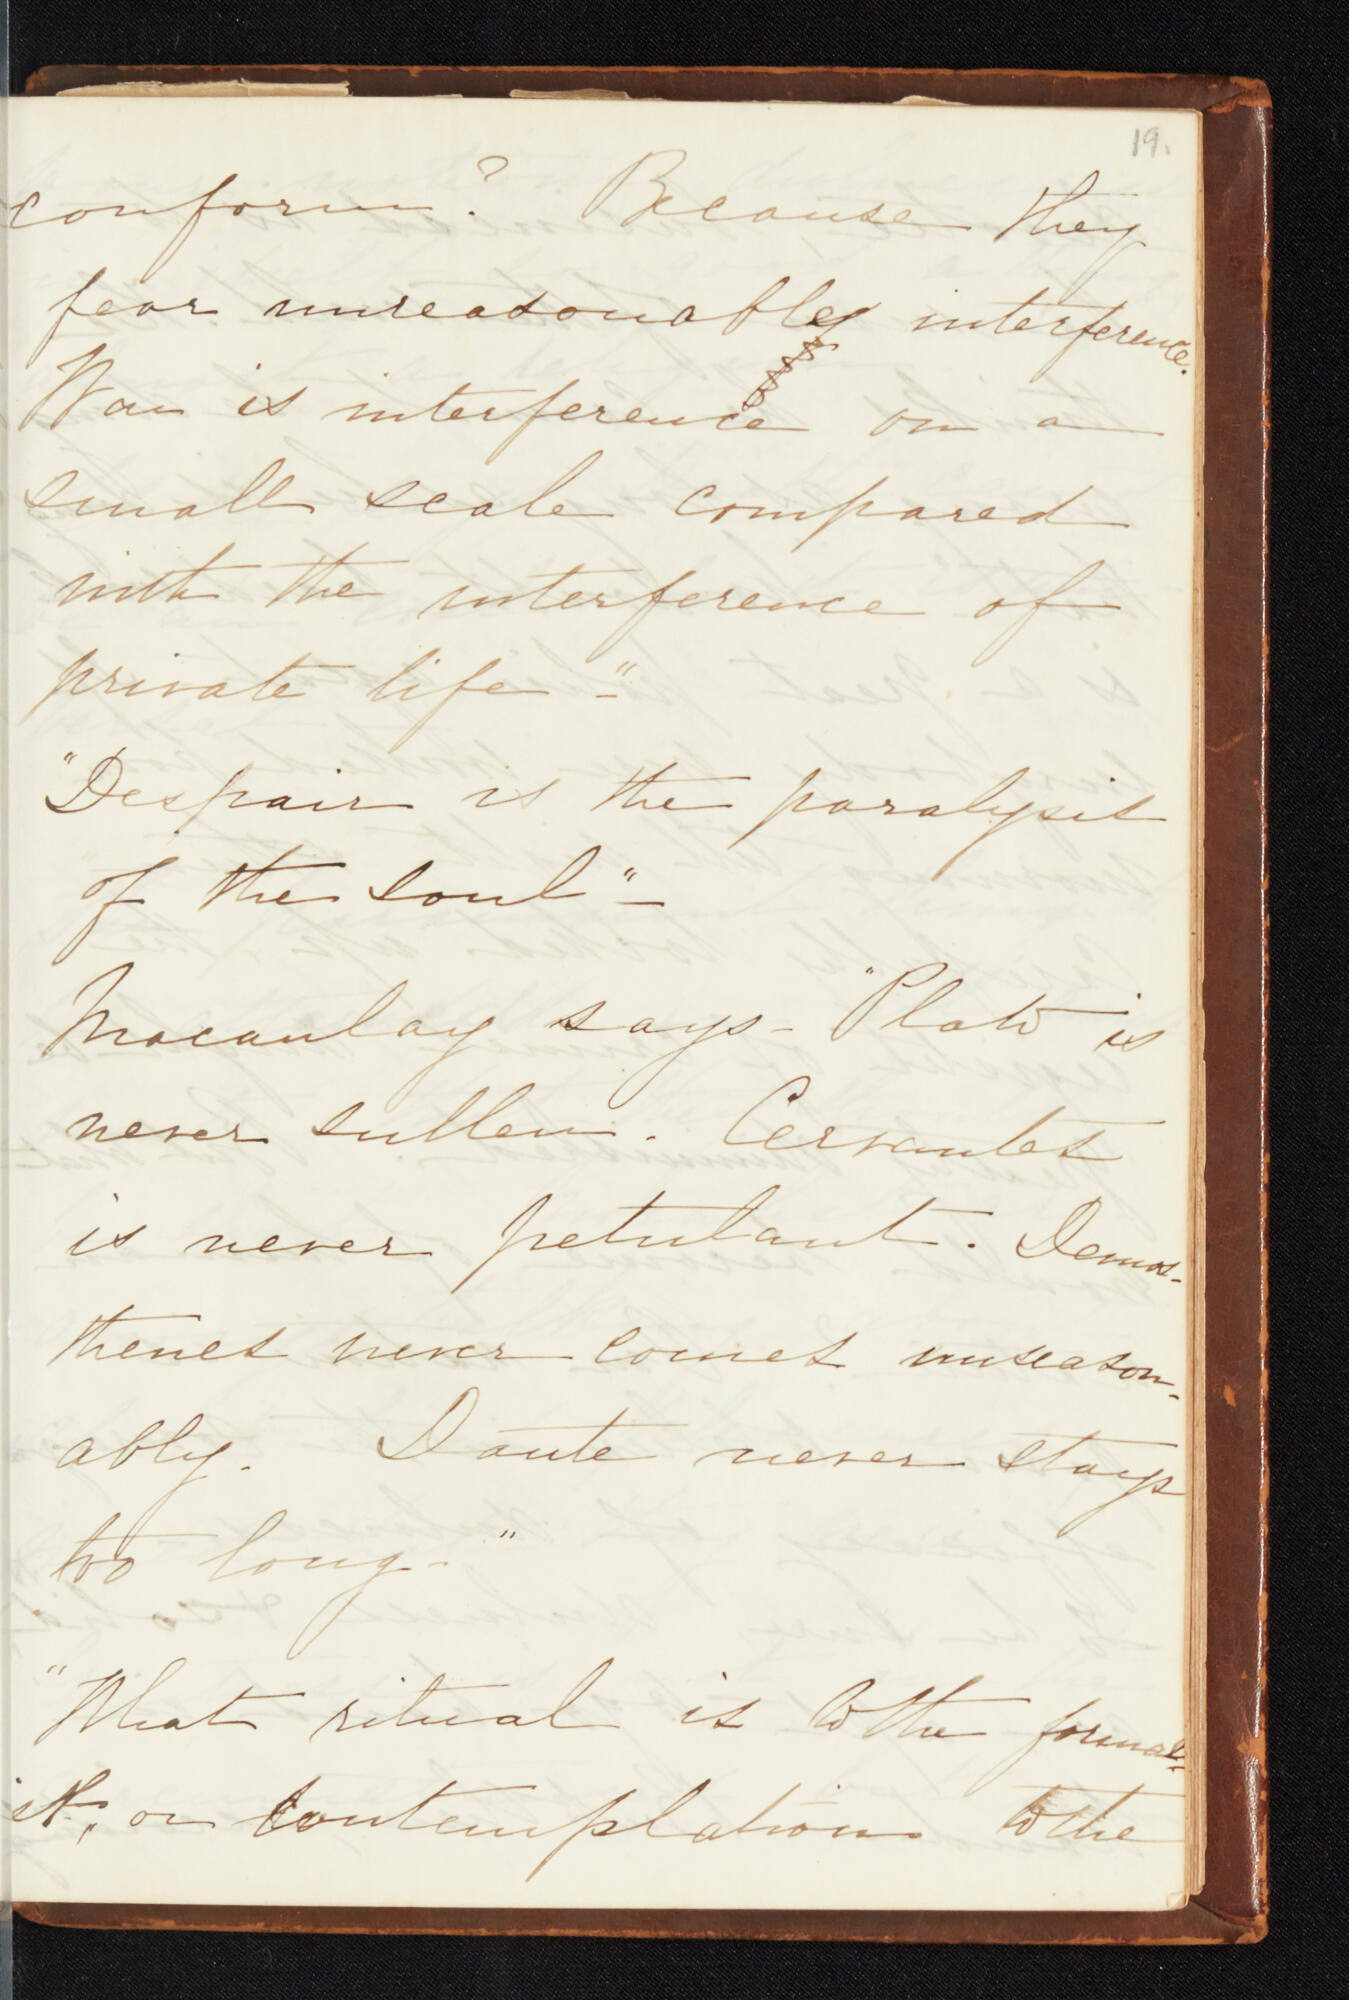 19.
conform? Because they
fear unreasonable interference.
War is interference on a
small scale compared
with the interference of
private life"-
"Despair is the paralysis
of the soul"-
Macaulay says - "Plato is
never sullen. Cervantes
is never petulant. Demos-
thenes never comes unseason-
ably. Dante never stays
too long-"
"What ritual is to the formal-
ist, or contemplation to the